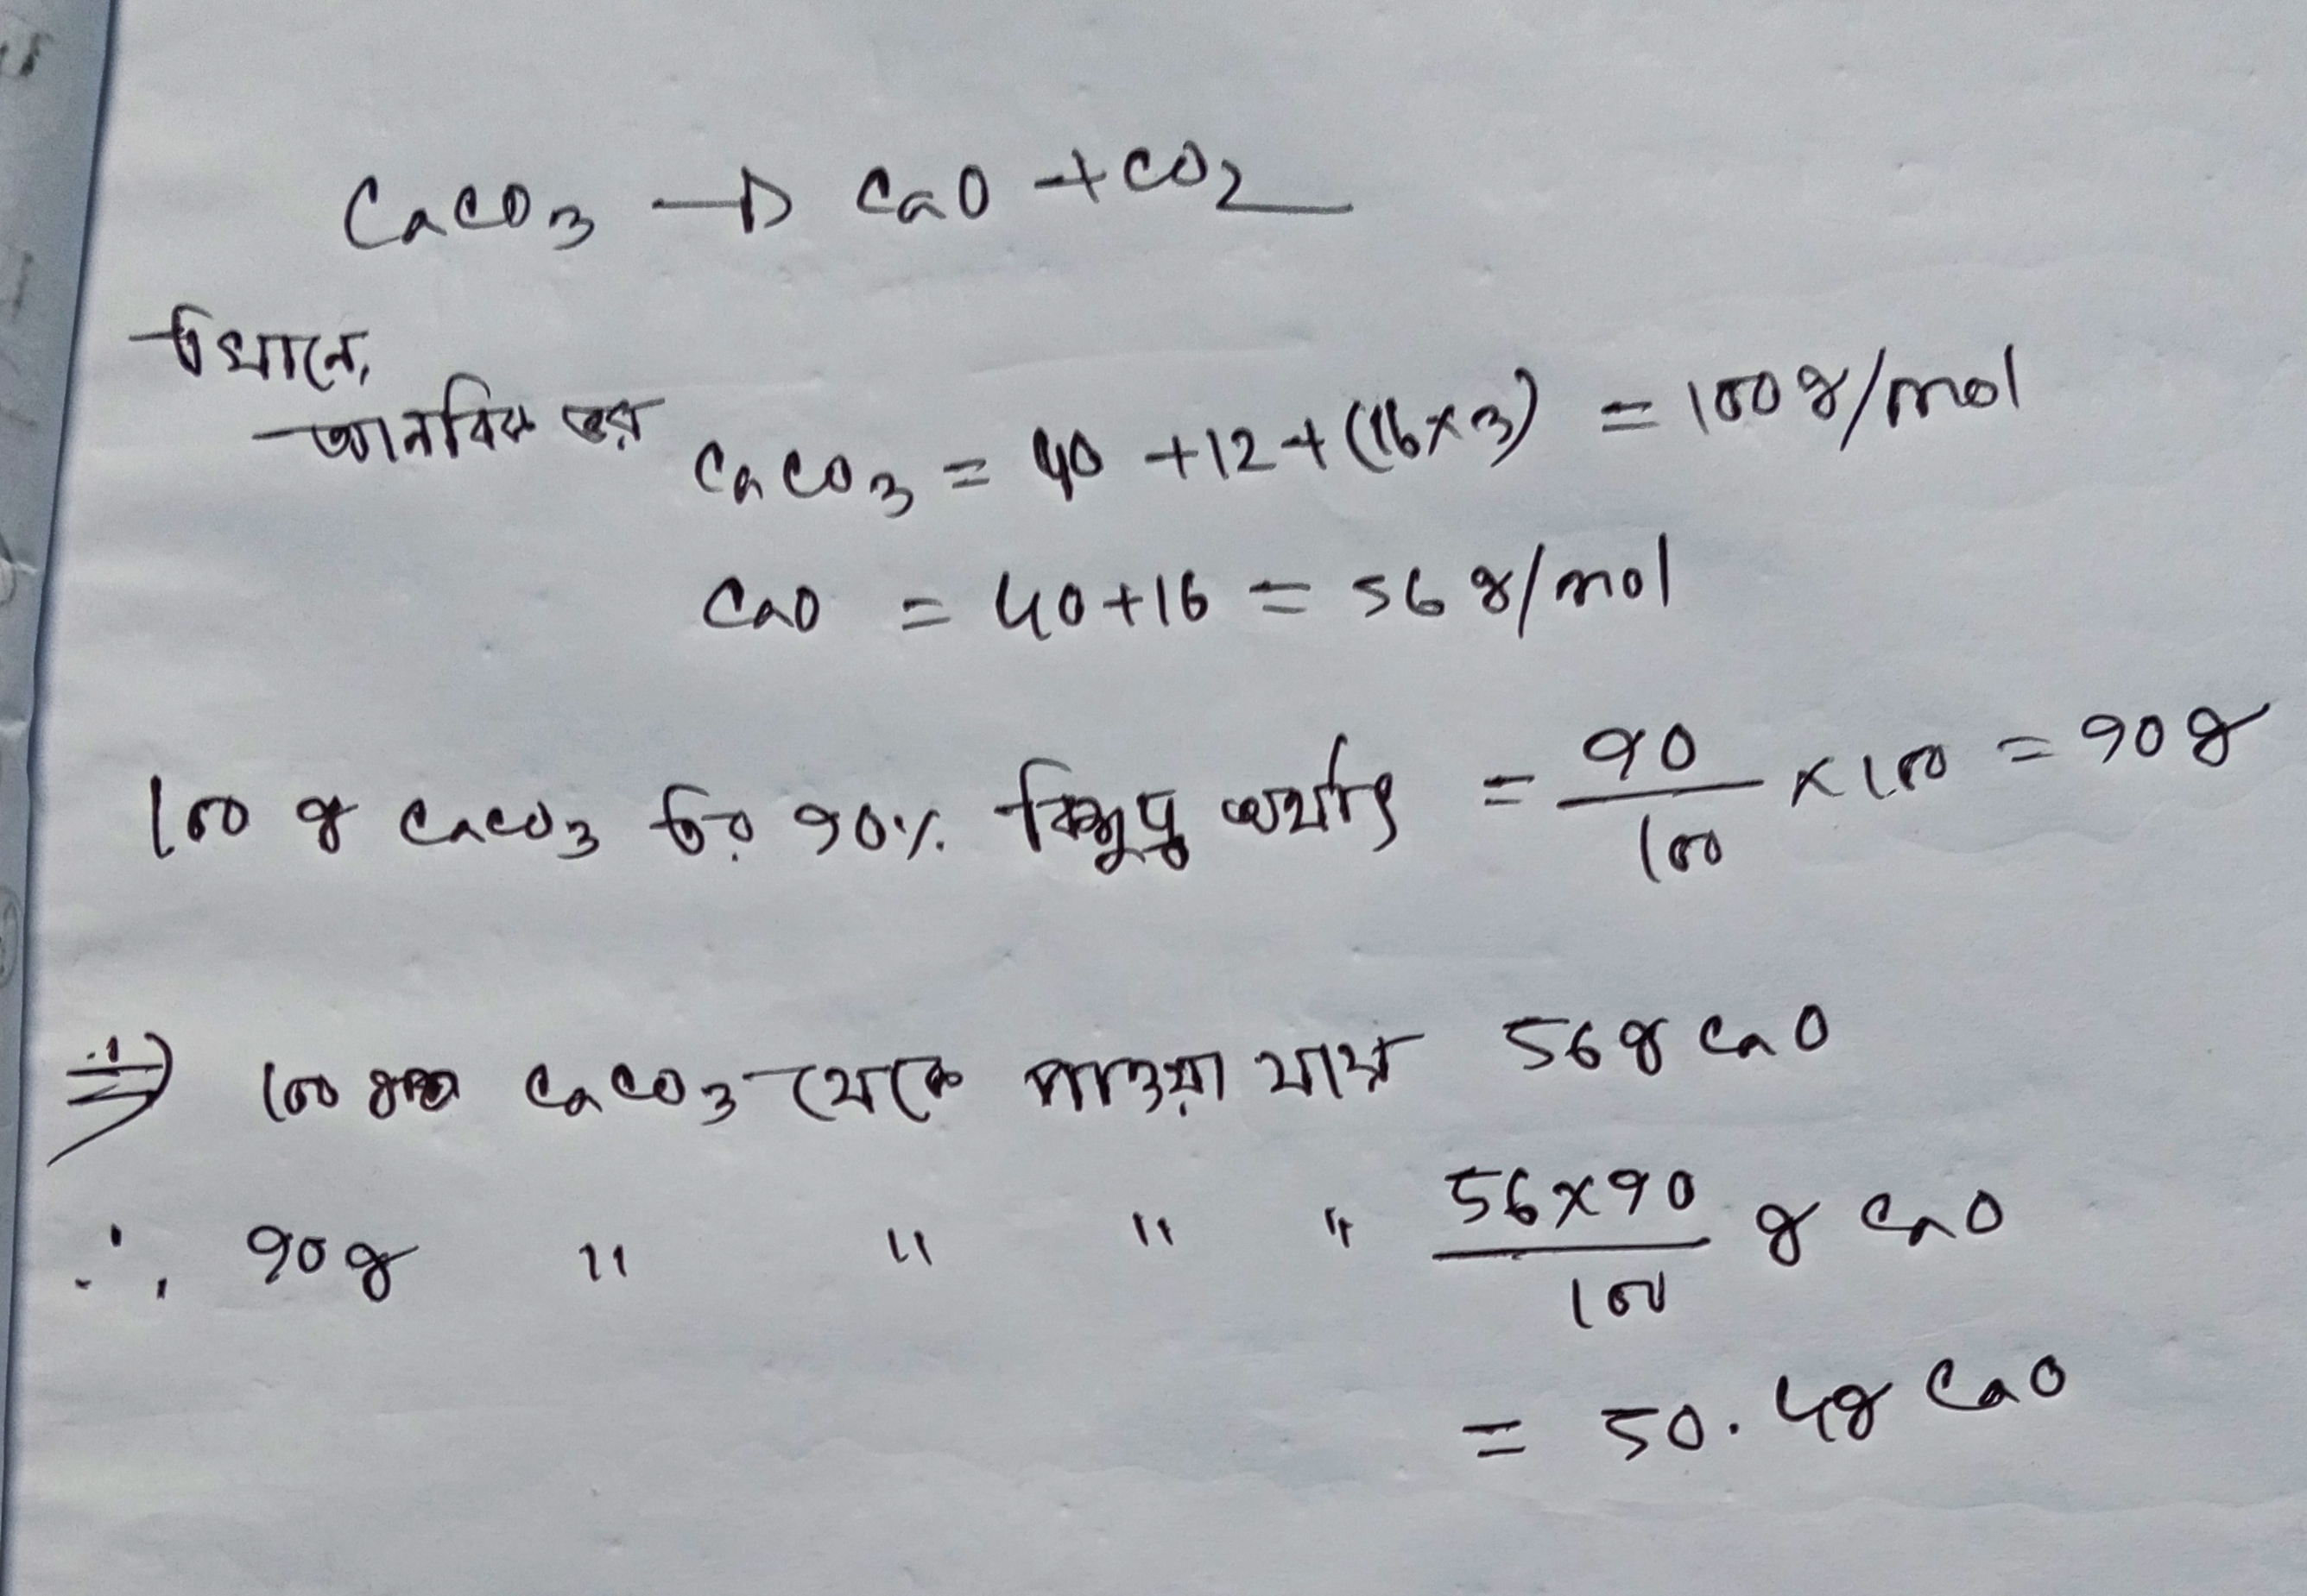 CaCO3 → CaO + CO2
এখানে,
আনবিক ভর CaCO3 = 40 + 12 + (16×3) = 100g/mol
CaO = 40+16 = 56 g/mol
100 g CaCO3 এর 90% বিশুদ্ধ অর্থাৎ = 90/100 × 100 = 90g
⇒ 100 g CaCO3 থেকে পাওয়া যায় 56g CaO
∴ 90g " " " " 56×90/100 g CaO
= 50.4g CaO